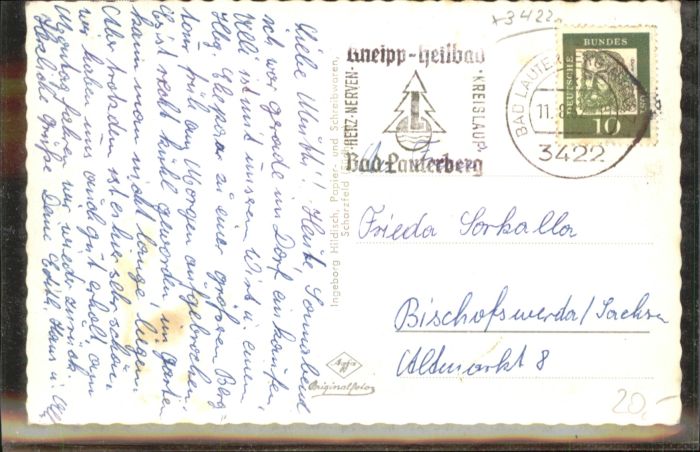 +3422
Kneipp-Heilbad
HERZ-NERVEN-
KREISLAUF
L
Bad Lauterberg
BAD LAUTERBERG
11.
3422
DEUTSCHE
BUNDES
POST
10
Liebe Mutti! Heute Sonnabend
ich war gerade im Dorf einkaufen,
Willi ist mit unserem Wirt u. einem
Hlg. Ehepaar zu einer großen Berg
tour früh am Morgen aufgebrochen.
Es ist recht kühl geworden, im Garten
kann man nicht lange liegen.
Aber trotzdem ist es hier sehr schön,
wir haben uns auch gut erholt. Am
Montag fahren wir wieder zurück.
Herzliche Grüße Deine Edith, Hans u.
Ingeborg Hildisch, Papier- und Schreibwaren,
Scharzfeld
Agfa
Originalfoto
Frieda Sorkalla
Bischofswerda/Sachsen
Altmarkt 8
20,-